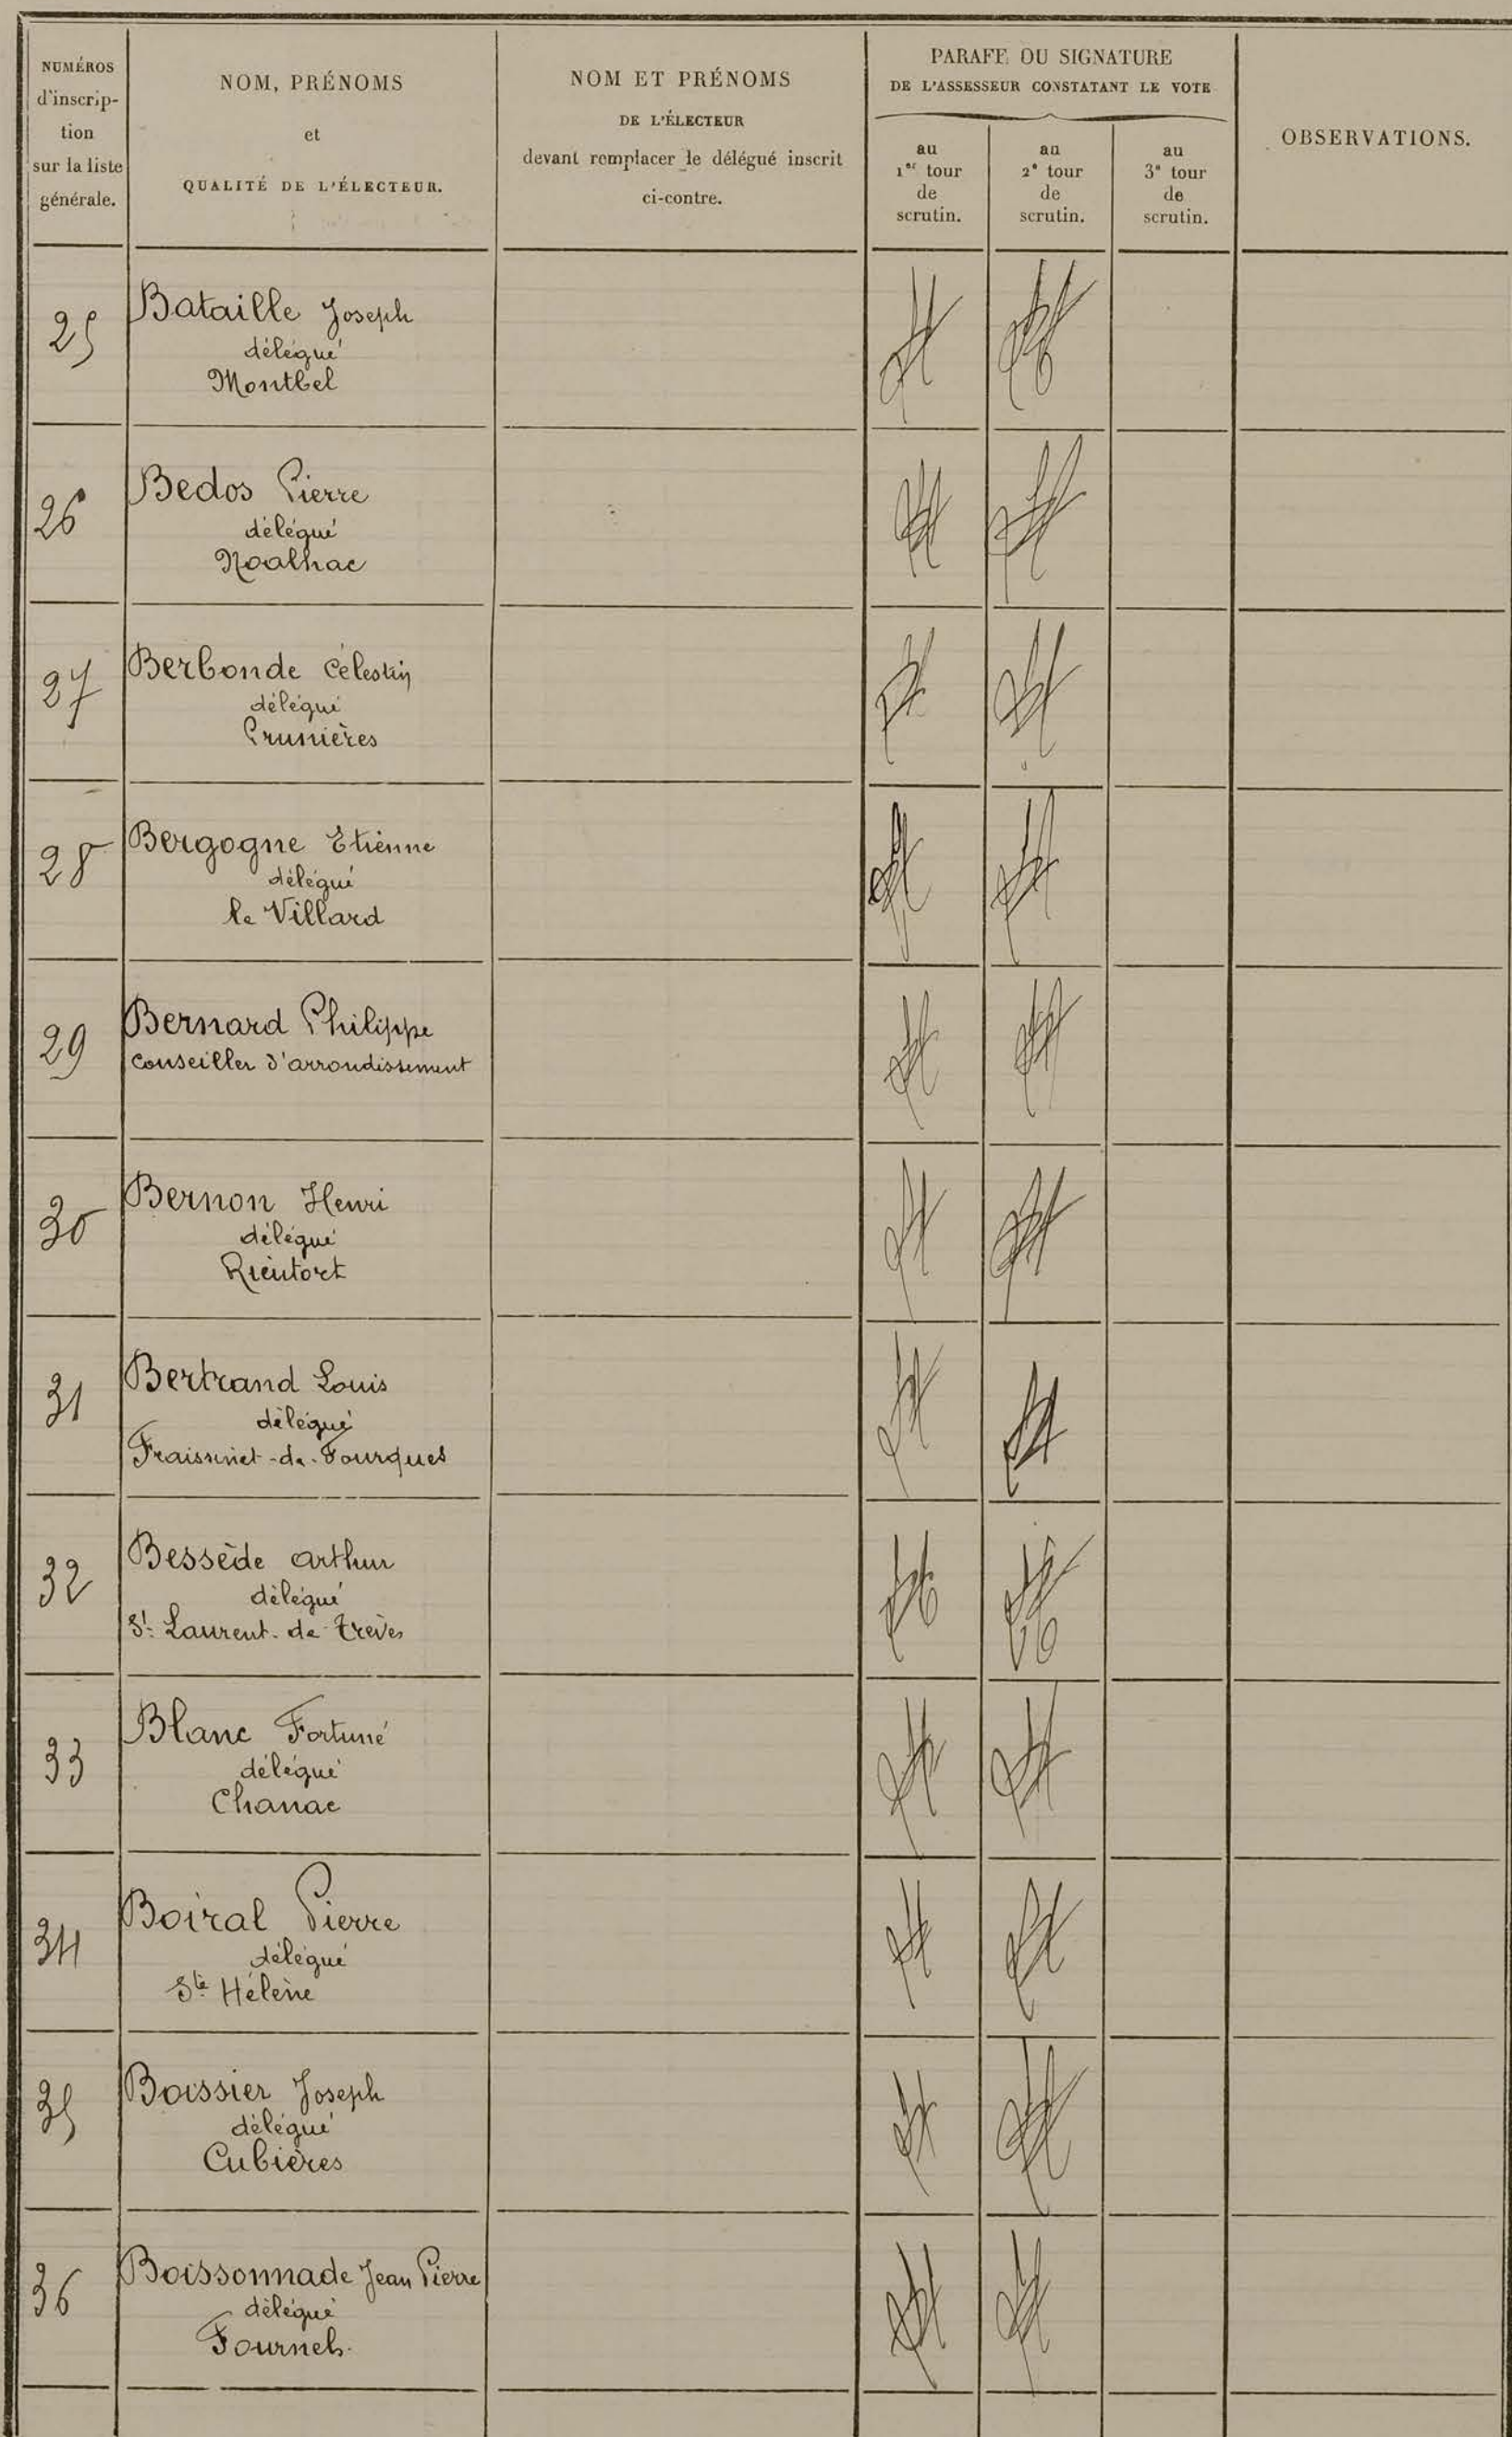 NUMÉROS
d'inscrip-
tion
sur la liste
générale.
NOM, PRÉNOMS
et
QUALITÉ DE L'ÉLECTEUR.
NOM ET PRÉNOMS
DE L'ÉLECTEUR
devant remplacer le délégué inscrit
ci-contre.
PARAFE OU SIGNATURE
DE L'ASSESSEUR CONSTATANT LE VOTE
au
1er tour
de
scrutin.
au
2e tour
de
scrutin.
au
3e tour
de
scrutin.
OBSERVATIONS.
25
Bataille Joseph
délégué
Montbel
26
Bedos Pierre
délégué
Noalhac
27
Berbonde Célestin
délégué
Prunières
28
Bergogne Etienne
délégué
le Villard
29
Bernard Philippe
Conseiller d'arrondissement
30
Bernon Henri
délégué
Rieutort
31
Bertrand Louis
délégué
Fraissinet-de-Fourques
32
Bessède Arthur
délégué
St. Laurent-de-Trèves
33
Blanc Fortuné
délégué
Chanac
34
Boiral Pierre
délégué
Ste Hélène
35
Boissier Joseph
délégué
Cubières
36
Boissonnade Jean Pierre
délégué
Fournels.